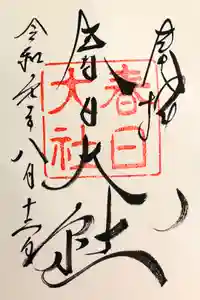 奉拝
春日大社
春日
大社
令和元年八月十三日